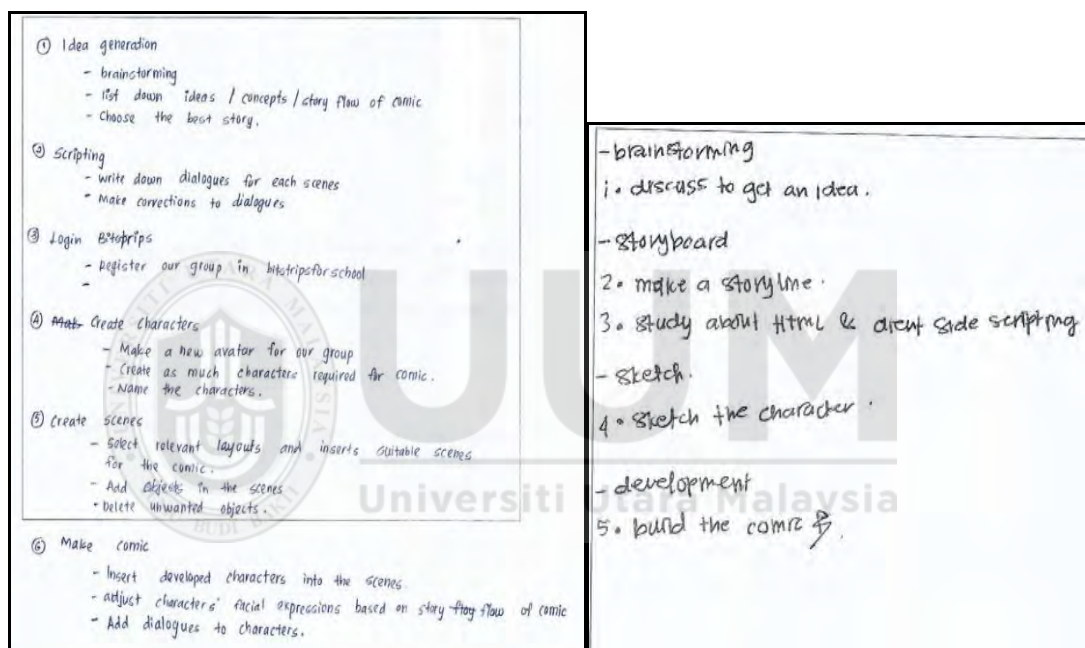 ① Idea generation
- brainstorming
- list down ideas / concepts / story flow of comic
- Choose the best story.
② Scripting
- write down dialogues for each scenes
- Make corrections to dialogues
③ Login Bitstrips
- Register our group in bitstripsforschool
-
④ Create characters
- Make a new avatar for our group
- Create as much characters required for comic.
- Name the characters.
⑤ Create scenes
- Select relevant layouts and inserts suitable scenes
for the comic.
- Add objects in the scenes
- Delete unwanted objects.
⑥ Make comic
- Insert developed characters into the scenes.
- adjust characters' facial expressions based on story flow of comic
- Add dialogues to characters.
- brainstorming
1. discuss to get an idea.
- storyboard
2. make a storyline.
3. study about HTML & client side scripting
- sketch.
4. sketch the character.
- development
5. build the comic
UUM
Universiti Utara Malaysia